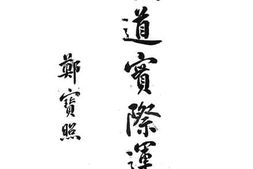 道實際運
鄭寶照